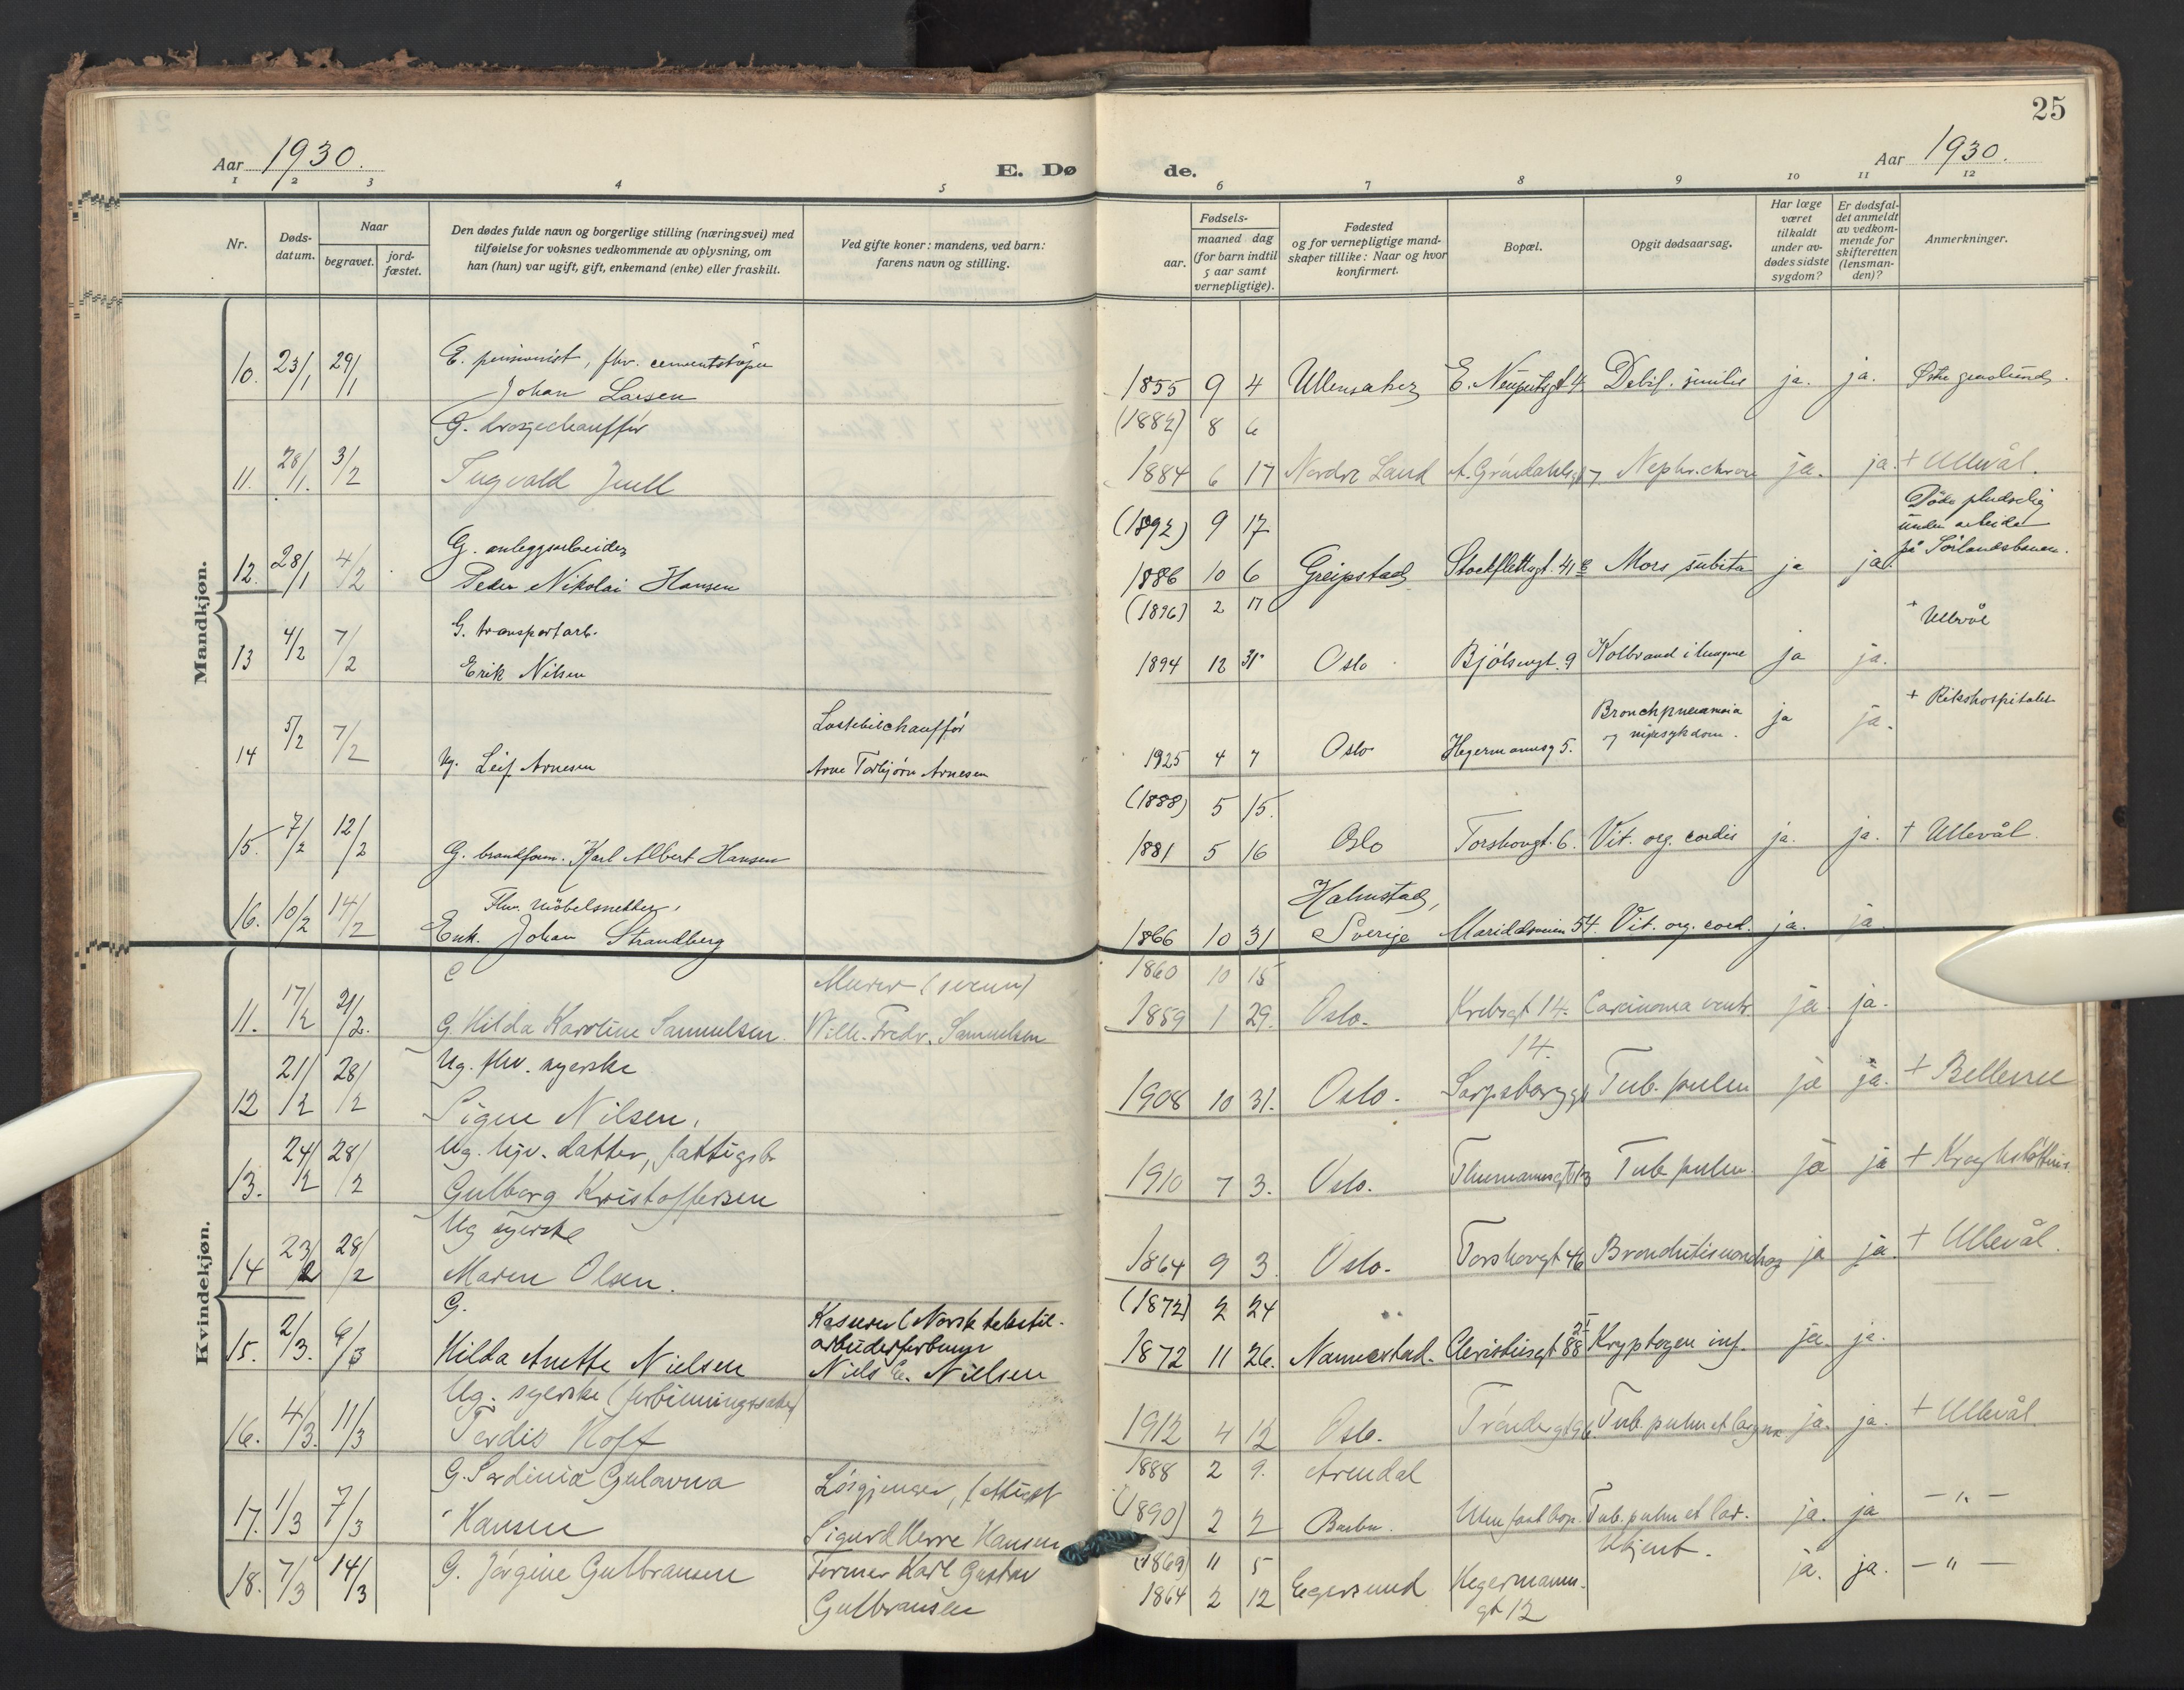 25
Aar 1930.
E. Dø de.
Aar 1930.
1 2 3 4 5 6 7 8 9 10 11 12
Nr.
Døds-datum.
Naar
begravet.
jord-fæstet.
Den dødes fulde navn og borgerlige stilling (næringsvei) med
tilføielse for voksnes vedkommende av oplysning, om
han (hun) var ugift, gift, enkemand (enke) eller fraskilt.
Ved gifte koner: mandens, ved barn:
farens navn og stilling.
Fødsels-
aar.
maaned dag
(for barn indtil
5 aar samt
vernepligtige).
Fødested
og for vernepligtige mand-
skaper tillike: Naar og hvor
konfirmert.
Bopæl.
Opgit dødsaarsag.
Har læge
været
tilkaldt
under av-
dødes sidste
sygdom?
Er dødsfal-
det anmeldt
av vedkom-
mende for
skifteretten
(lensman-
den)?
Anmerkninger.
Mandkjøn.
E. pensionist, fhv. cementstøper
10. 23/1 29/1 Johan Larsen 1855 9 4 Ullensaker E. Neupertsgt 4 Debil. senilis ja. ja. Østre gravlund
G. drosjechauffør (1882) 8 6
11. 28/1. 3/2 Juell 1884 6 17 Nordre Land A. Gröndahlsgt 7 Nephr. chron ja. ja. + Ullevål.
(1892) 9 17 Döde pludselig
under arbeide
på Sørlandsbanen.
G. anleggsarbeider
12. 28/1 4/2 Peder Nikolai Hansen 1886 10 6 Greipstad Stockflethsgt. 41 Mors subita ja ja
(1896) 2 17
G. transportarb. + Ullevål
13 4/2 7/2 Erik Nilsen 1894 12 31 Oslo Bjølsengt. 9 Kolbrand i lungene ja ja.
Lastebilchauffør Bronchpneumonia + Rikshospitalet
14 5/2 7/2 Ug. Leif Arnesen Arne Torbjørn Arnesen 1925 4 7 Oslo Hegermannsg 5. og ja ja.
(1888) 5 15.
15. 7/2 12/2 G. brandform. Karl Albert Hansen 1881 5 16 Oslo Torshovgt. 6. Vit. org. cordis ja. ja. + Ullevål.
Fhv. møbelsnekker, Halmstad,
16. 10/2 14/2 Enk. Johan Strandberg 1866 10 31 Sverige Maridalsveien 54. Vit. org. cord. ja. ja.
Kvindekjøn.
Murer 1860 10 15
11. 17/2 21/2. G. Hilda Karoline Samuelsen. Wilh. Fredr. Samuelsen 1859 1 29. Oslo. Krebsgt 14. Carcinoma ventr. ja. ja.
Ug. fhv. syerske 14.
12 21/2 28/2 Signe Nilsen. 1908 10 31. Oslo. Sarpsborggt Tub. pulm ja ja. + Bellevue
Ug. hjv. datter, fattigb.
13. 24/2 28/2 Gulborg Kristoffersen 1910 7 3. Oslo. Thurmannsgt 13 Tub. pulm. ja ja +
Ug syerske
14 23/2 28/2 Maren Olsen. 1864 9 3. Oslo. Torshovgt 46 ja ja. + Ullevål.
G. Kaserer (Norsk tekstil- (1872) 2 24
arbeiderforbund
15. 2/3. 6/3 Hilda Anette Nielsen Niels C. Nielsen 1872 11 26. Nannestad. Christiesgt 88 Kryptogen inf. ja. ja.
Ug. syerske
16. 4/3. 11/3 Tordis Hoff 1912 4 12 Oslo. Tröndergt 9 Tub. pulm et laryn ja. ja. + Ullevål.
G. Sardinia Gulovna Løsgjenger, 1888 2 9. Arendal
17. 1/3 7/3 Hansen Sigurd Herre Hansen (1890) 2 2 Barbu. Uten fast bop. Tub. pulm et lar. ja. ja — " —
18. 7/3 14/3 G. Jørgine Gulbransen Former Karl Gustav (1869) 11 5 Ukjent. ja. ja. — " —
Gulbransen 1864 2 12 Egersund Hegermanns-
gt 12